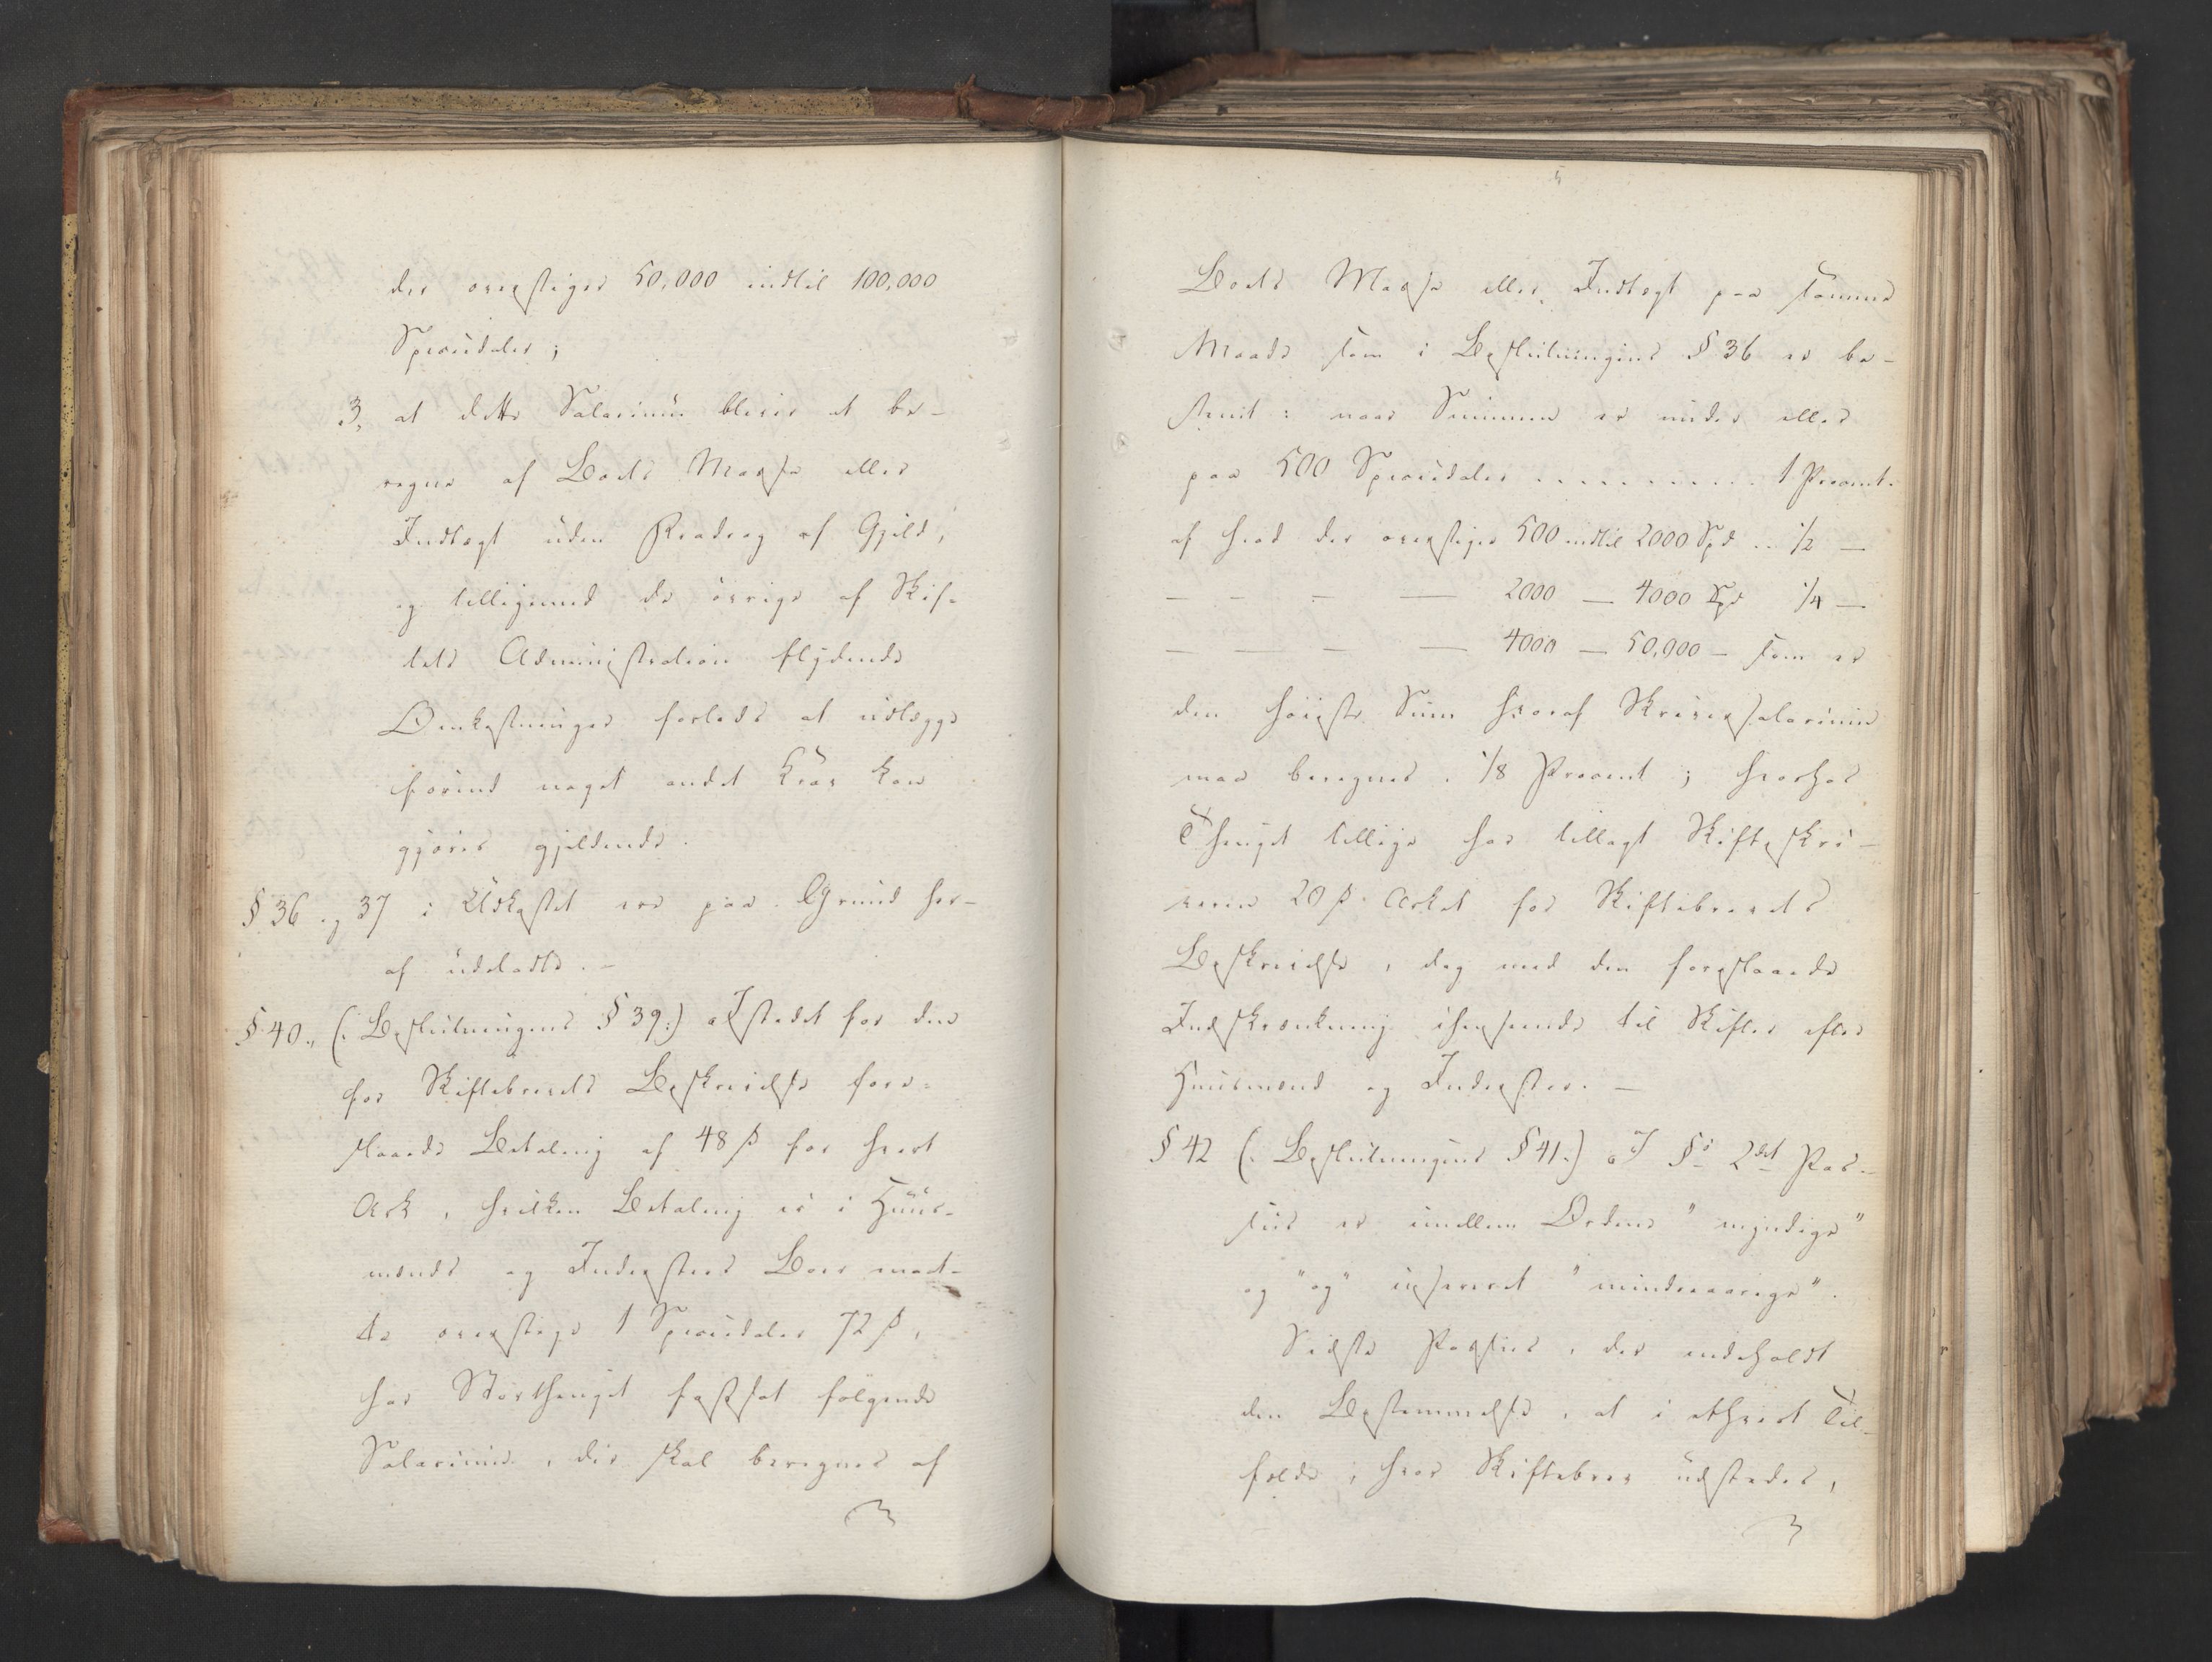 der overstiger 50,000 indtil 100,000
Speciedaler;
3, at dette Salarium bliver at be-
regne af Boets Massa eller
Indtægt uden Fradrag af Gjeld,
og tilligemed de övrige af Skif-
tets Administration flydende
Omkostninger forlods at udlægge
forend noget andet Krav kan
gjöres gjeldende.
§ 36 og 37 i Udkastet ere paa Grund her-
af udeladte. -
§ 40., (: Beslutningens § 39:) a Istedet for den
for Skiftebrevets Beskrivelse fore-
slaaede Betaling af 48 ß for hvert
Ark, hvilken Betaling ei i Huus-
mænds og Inderstes Boer maat-
te overstige 1 Speciedaler 72 ß,
har Storthinget fastsat fölgende
Salarium, der skal beregnes af
Boets Massa eller Indtægt paa samme
Maade som i Beslutningens § 36 er be-
stemt: naar Summen er under eller
paa 500 Speciedaler . . . . . . . . . . . 1 Procent.
af hvad der overstiger 500 indtil 2000 Spd .. 1/2 —
— — — — 2000 — 4000 Spd 1/4 —
— — — — 4000 — 50,000 — som er
den höieste Sum hvoraf Skriversalarium
maa beregnes. 1/8 Procent; hvorhos
Thinget tillige har tillagt Skifteskri-
veren 20 ß Arket for Skiftebrevets
Beskrivelse, dog med den foreslaaede
Indskrænkning ihenseende til Skifter efter
Huusmænd og Inderster. —
§ 42 (: Beslutningens § 41:) a I §s 2det Pas-
sus er imellem Ordene "myndige"
og "og" insereret "mindreaarige".
Sidste Passus, der indeholdt
den Bestemmelse, at i ethvert Til-
fælde, hvor Skiftebrev udstedes,